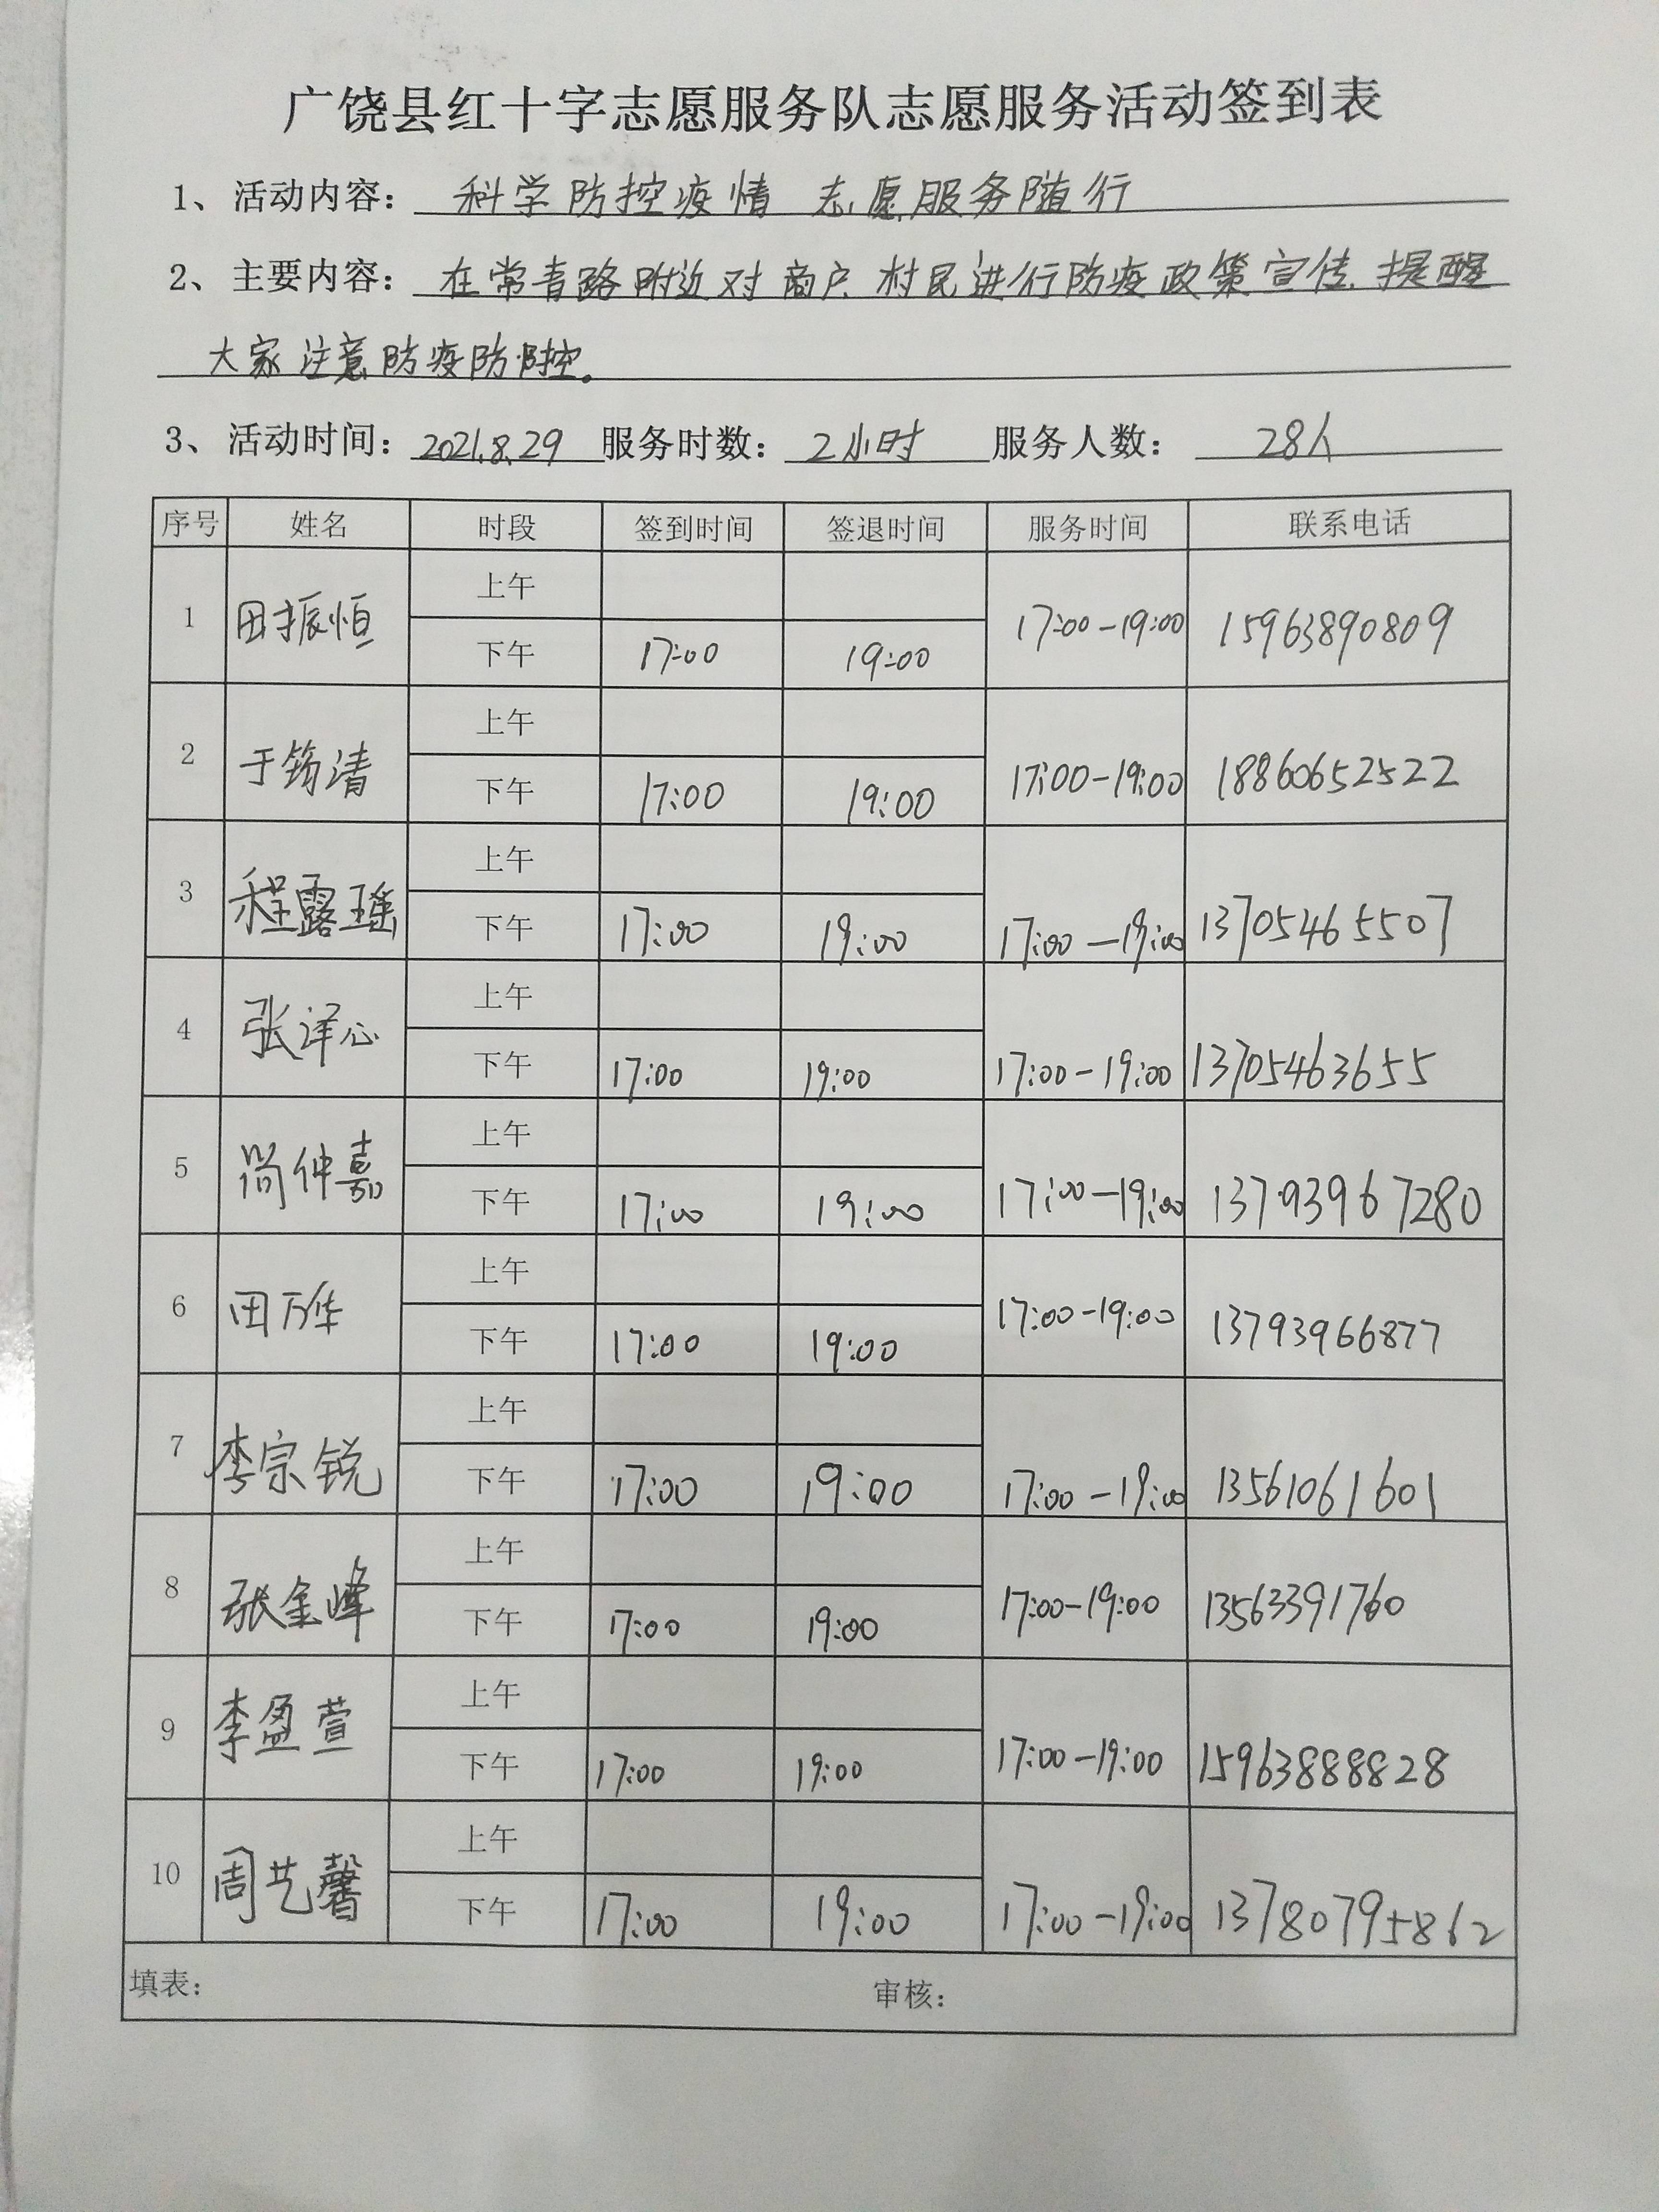 广饶县红十字志愿服务队志愿服务活动签到表
1、活动内容：科学防控疫情 志愿服务随行
2、主要内容：在常青路附近对商户、村民进行防疫政策宣传，提醒
大家注意防疫防控。
3、活动时间：2021.8.29 服务时数：2小时 服务人数：28人
序号 姓名 时段 签到时间 签退时间 服务时间 联系电话
1 田振恒 上午 17:00-19:00 15963890809
下午 17:00 19:00
2 于筠清 上午 17:00-19:00 18860652522
下午 17:00 19:00
3 程露瑶 上午 17:00-19:00 13705465507
下午 17:00 19:00
4 张译心 上午 17:00-19:00 13705463655
下午 17:00 19:00
5 尚仲嘉 上午 17:00-19:00 13793967280
下午 17:00 19:00
6 田万华 上午 17:00-19:00 13793966877
下午 17:00 19:00
7 李宗锐 上午 17:00-19:00 13561061601
下午 17:00 19:00
8 张金峰 上午 17:00-19:00 13563391760
下午 17:00 19:00
9 李盈萱 上午 17:00-19:00 15963888828
下午 17:00 19:00
10 周艺馨 上午 17:00-19:00 13780795862
下午 17:00 19:00
填表： 审核：